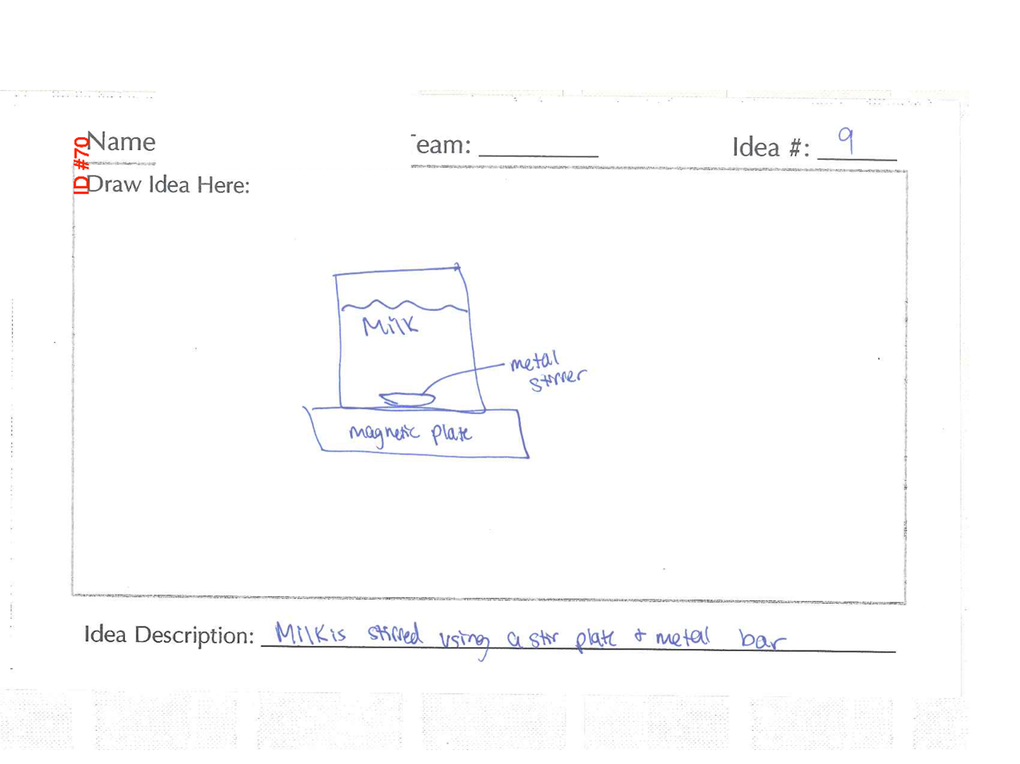 Name eam: Idea #: 9
ID #70
Draw Idea Here:
Milk
metal
stirrer
magnetic plate
Idea Description: Milk is stirred using a stir plate + metal bar